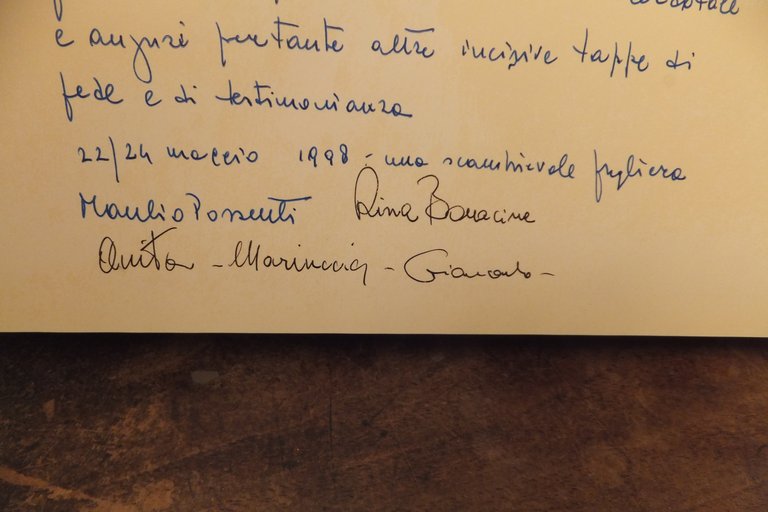 e auguri per tante altre incisive tappe di
fede e di testimonianza
22/24 maggio 1998 - una scambievole preghiera
Manlio Possenti Rina Bonacina
Anita - Mariuccia - Giancarlo -